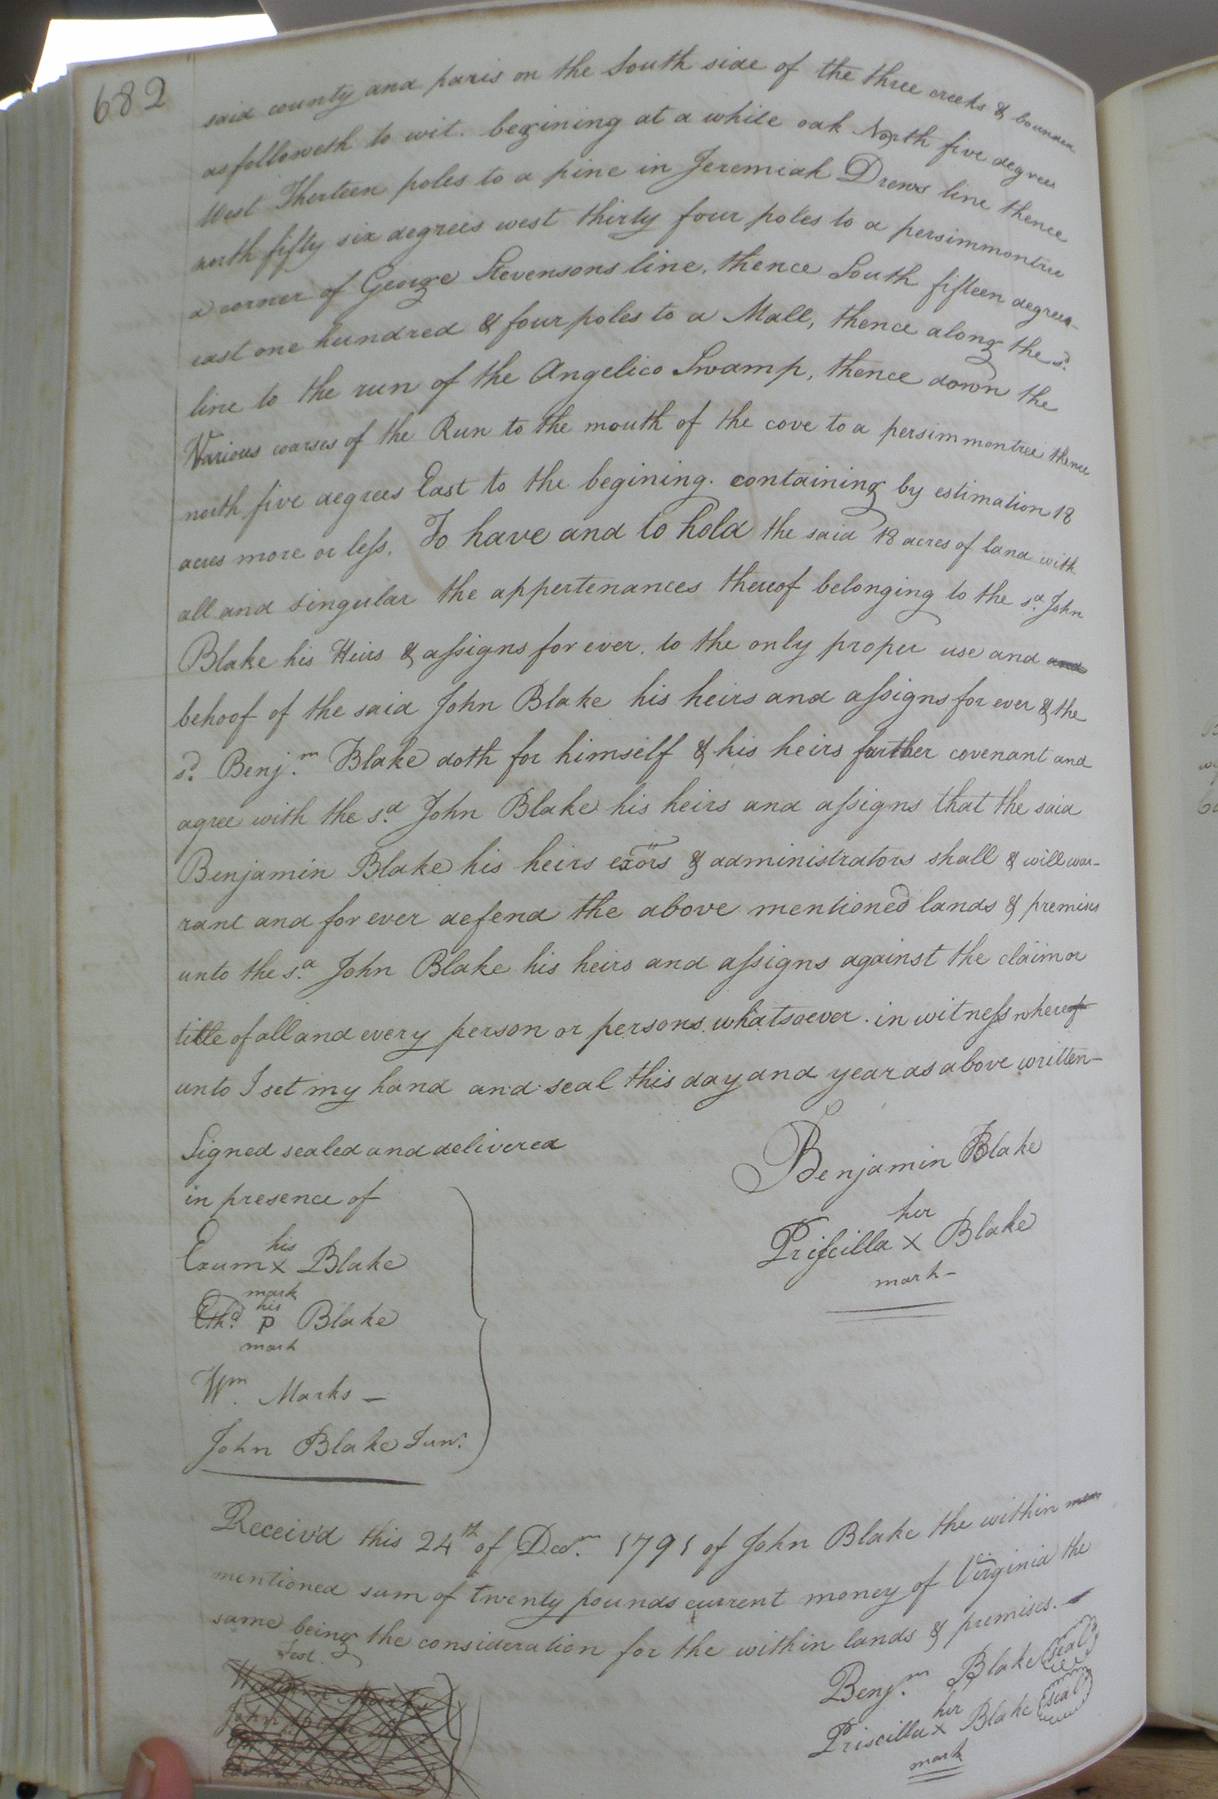 682
said county and paris on the South side of the three creeks & bounded
as followeth to wit. begining at a white oak North five degrees
West Therteen poles to a pine in Jeremiah Drews line thence
north fifty six degrees west thirty four poles to a persimmontree
a corner of George Stevensons line, thence South fifteen degrees
east one hundred & four poles to a Mall, thence along the sd.
line to the run of the Angelico Swamp, thence down the
Various courses of the Run to the mouth of the cove to a persimmontree thence
north five degrees East to the begining. containing by estimation 18
acres more or less. To have and to hold the said 18 acres of land with
all and singular the appertenances thereof belonging to the sd. John
Blake his Heirs & assigns for ever. to the only proper use and and
behoof of the said John Blake his heirs and assigns for ever & the
sd. Benj.m Blake doth for himself & his heirs further covenant and
agree with the sd. John Blake his heirs and assigns that the said
Benjamin Blake his heirs exors & administrators shall & will war-
rant and for ever defend the above mentioned lands & premises
unto the sd. John Blake his heirs and assigns against the claim or
title of all and every person or persons whatsoever. in witness whereof
unto I set my hand and seal this day and year as above written-
Signed sealed and delivered
in presence of
his
Exum x Blake
mark
his
Ethd. P Blake
mark
Wm. Marks -
John Blake Junr.
Benjamin Blake
her
Priscilla x Blake
mark-
Receiv'd this 24th of Decm. 1791 of John Blake the within men
mentioned sum of twenty pounds current money of Virginia the
same being the consideration for the within lands & premises. -
Test.
Benj.m Blake seal
her
Priscilla x Blake seal
mark